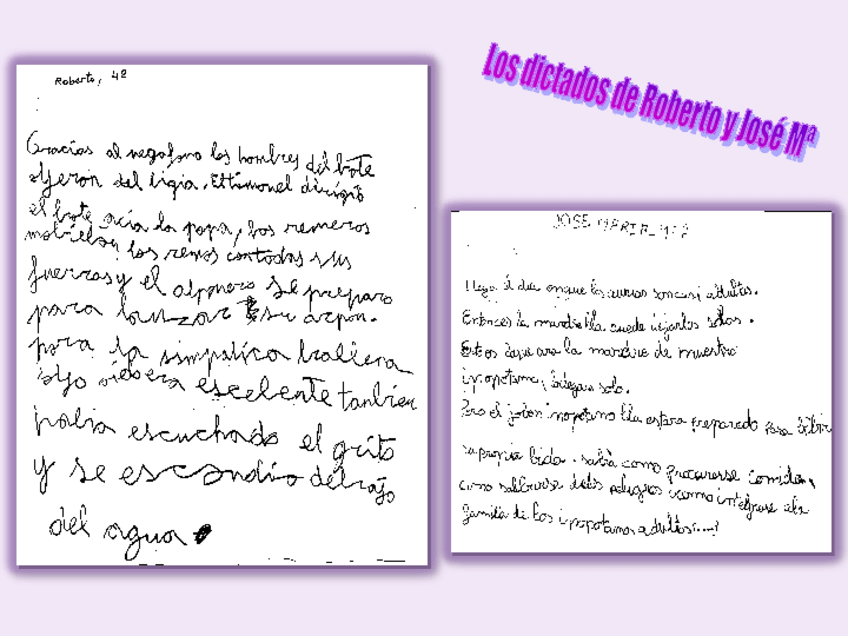 Los dictados de Roberto y José Mª
Roberto, 4º
Gracias al negafono los hombres del bote
oljeron del ligia. El timonel dirigió
el bote acia la popa, los remeros
los remos con todas sus
fuerzas y el alponero se preparo
para lanzar su arpon.
pora la simpatica ballena
oído escelente tanbien
habia escuchado el grito
y se escondio debajo
del agua
JOSE MARIA
Llega el dia enque las curias son casi adultas.
Entonces la mardre lla puede dejarlos solos.
Estos dejar ara la mardre de nuestro
ipopotamo, solo.
Pero el joben inopotamo lla estara preparado para bibir
su propia bida. sabra como procurarse comida,
como salbarse delos peligros icomo integrarse ala
familia de los ipopotamos adultos....